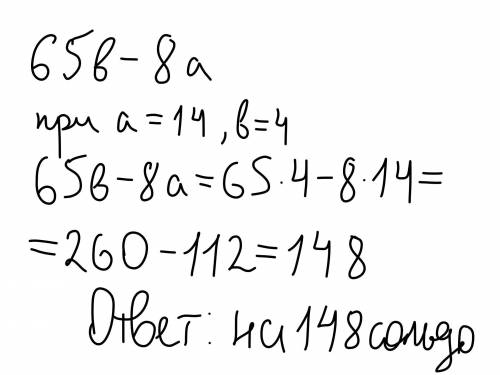 65в-8а
при а=14, в=4
65в-8а=65·4-8·14=
=260-112=148
Ответ: на 148 сольдо